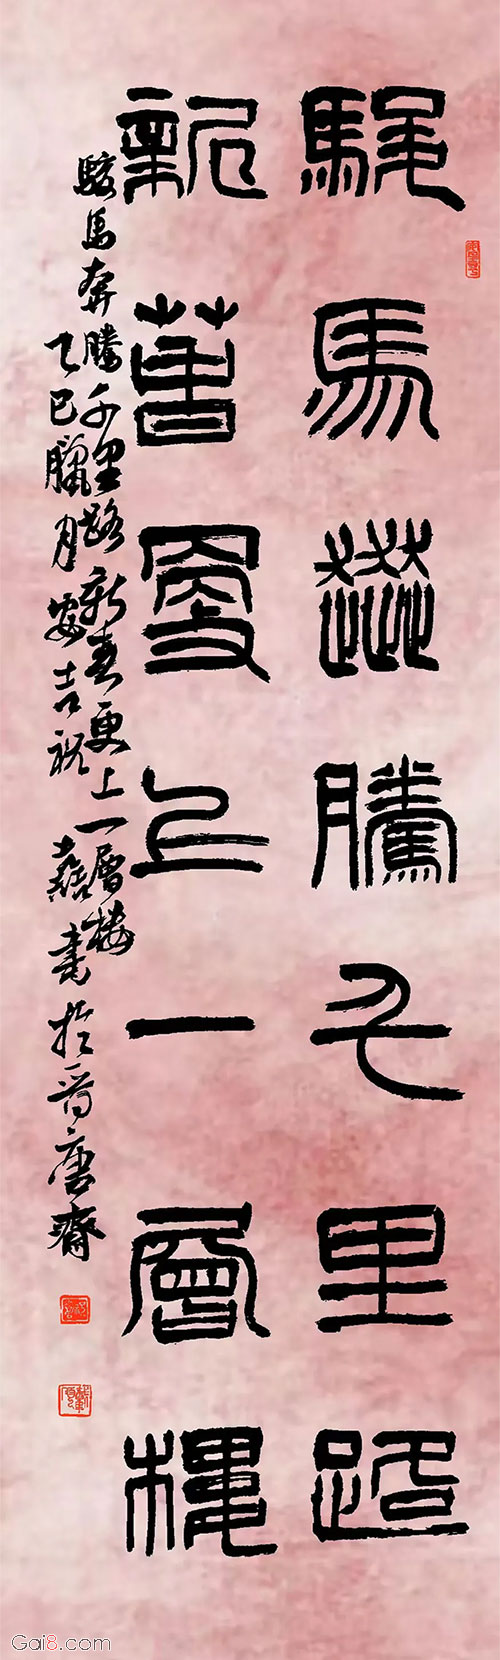 駿馬奔騰千里路
新春更上一層樓
駿馬奔騰千里路新春更上一層樓
乙巳臘月安吉祝書於晉唐齋
Gai8.com